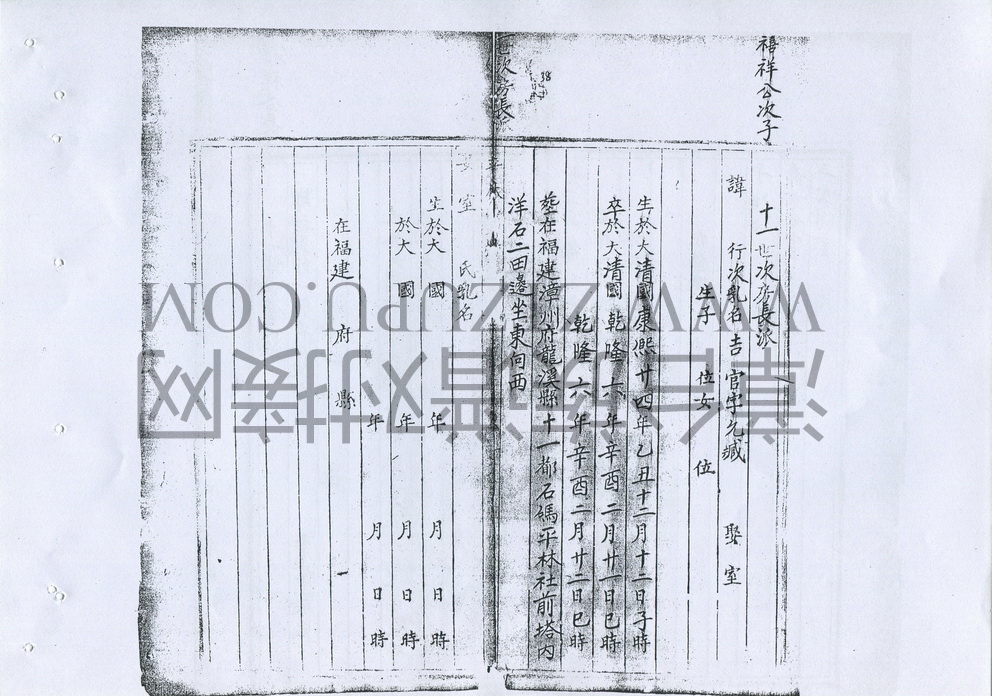 禧祥公次子
十一世次房長派
諱 行次乳名吉 官字允臧 娶室
生子 位女 位
生於大清國康熙廿四年乙丑十二月十二日子時
卒於大清國乾隆六年辛酉二月廿一日巳時
乾隆六年辛酉二月廿二日巳時
塟在福建漳州府龍溪縣十一都石碼平林社前塔内
洋石二田邊坐東向西
世次房長
38
室 氏乳名
生於大 國 年 月 日 時
於大 國 年 月 日 時
年 月 日 時
在福建 府 縣
WWW.ZZZUPU.COM
漳台族谱对接网